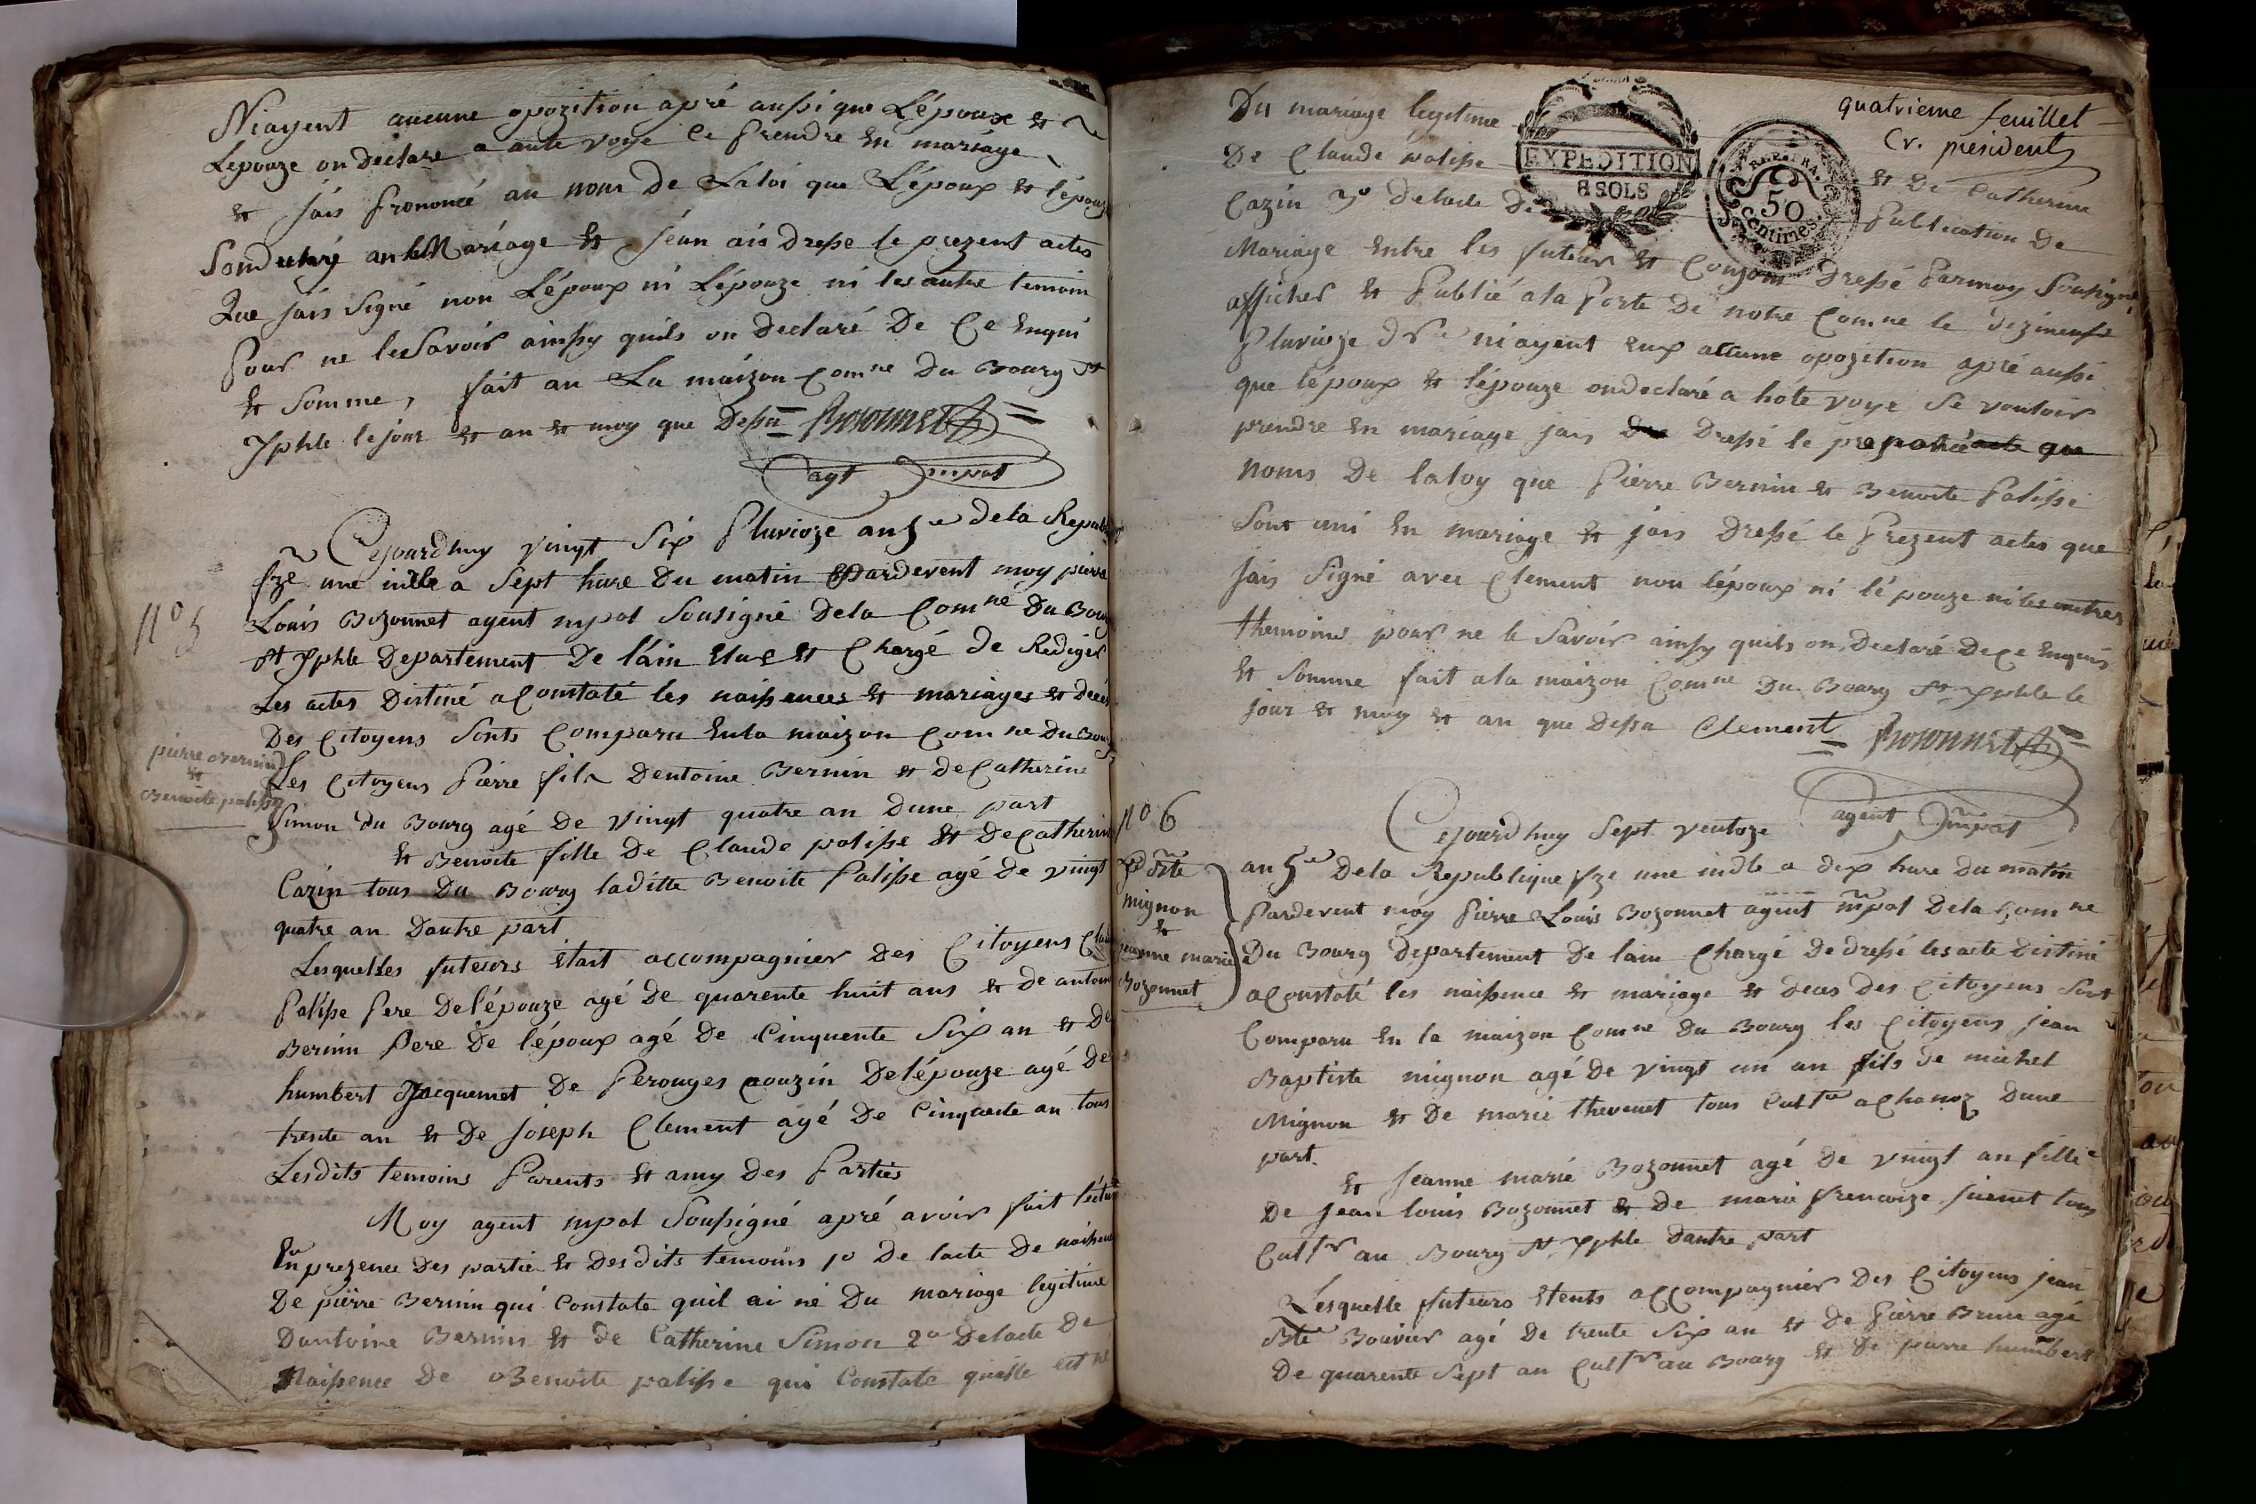 Niayent aucune opozition apré aussi que L'épouse et
Lepouze on declare a aute voye ce prendre en mariage
et jais prononcé au nom de Laloi que L'époux et l'épouze
Son an Mariage et jéan ais dresse le prezent actes
Que jais signé non L'époux ni L'épouze ni les autre temoin
pour ne le Savoir ainssy quils on declaré De Ce enqui
et Somme, fait au La maizon Comne Du Bourg St
Xphle le jour et an et moy que Dessu Bozonnet
agt mpal
Cejourdhuy vingt Six pluvioze an 5e dela Republ
fze une indle a Sept hure Du matin pardevent moy pierre
Louis Bozonnet agent mpal Sousigné Dela Comne Du Bourg
St Xphle Departement De l'ain elue et Chargé de Rediger
Les actes Distiné a Constaté les naissences et mariages et deces
Des Citoyens Sonts Comparu enla maizon Comne Du Bourg
Les Citoyens pierre fils Dentoine Bernin et de Catherine
Simon du Bourg agé De vingt quatre an Dune part
et Benoite fille De Claude palisse et De Catherine
Cazin tous Du Bourg laditte Benoite palisse agé De vingt
quatre an Dautre part
Lesquelles futeurs était accompagnier Des Citoyens Claude
palisse pere Delépouze agé De quarente huit ans et de antoine
Bernin pere De l'époux agé De Cinquente Six an et De
humbert Jacquemet De perouges couzin Delépouze agé De
trente an et De joseph Clement agé De Cinquente an tous
Lesdits temoins parents et amy Des parties
Moy agent mpal Soussigné apré avoir fait léctur
En prezence Des partie et Desdits temoins 1o De lacte De naissence
De pierre Bernin qui Constate quil ai né Du mariage legitime
Dantoine Bernin et De Catherine Simon 2o Delacte De
Naissence De Benoite palisse qui Constate quelle est né
No 5
pierre Bernin
et
Benoite palisse
quatrieme feuillet
Cr. president
EXPEDITION
8 SOLS
50
Centimes
Du mariage legitime
De Claude palisse et De Catherine
Cazin 3o Delacte De publication De
Mariage entre les futeur et Conjoin Dressé parmoy Soussigné
afficher et publié ala porte De notre Comne le dizineuf
pluvioze dr niayent eux aucune opozition apré aussi
que lépoux et lépouze on declaré a hote voye Se vouloir
prendre en mariage jais Dressé le
noms De laloy que pierre Bernin et Benoite palisse
Sont uni en mariage et jais Dressé le prezent actes que
jais Signé avec Clement non lépoux ni lé pouze ni les autres
themoins pour ne le Savoir ainsy quils on Declaré De Ce enquis
et Somme fait ala maizon Comne Du Bourg St Xphle le
jour et moy et an que Dessu Clement Bozonnet
agent mpal
No 6
jn bte
mignon
et
jeanne marie
Bozonnet
Cejourdhuy Sept ventoze
an 5e Dela Republique fze une indle a dix hure Du matin
pardevent moy pierre Louis Bozonnet agent mpal Dela Comne
Du Bourg Departement De lain Chargé De dressé les acte Distiné
a Constaté les naissence et mariage et deces Des Citoyens Sont
Comparu en la maizon Comne Du Bourg les Citoyens jean
Baptiste mignon agé De vingt un an fils De michel
Mignon et De marie thevenet tous Cultr a Chanoz Dune
part
et Jeanne marie Bozonnet agé De vingt an fille
De jean louis Bozonnet et De marie francoize juenet tous
Cultr au Bourg St Xphle Dautre part
Lesquelle futeurs étents accompagnier Des Citoyens jean
Bte Bouvier agé De trente Six an et De pierre Brun agé
De quarente Sept an Cultr au Bourg et De pierre humbert